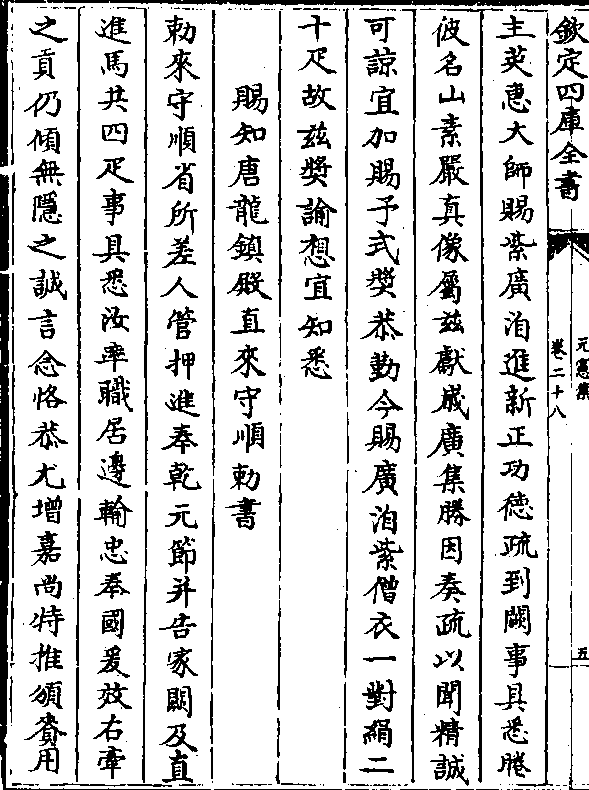 欽定四庫全書
元憲集
卷二十八
五
主英惠大師賜紫廣洎進新正功徳疏到闕事具悉睠
彼名山素嚴真像屬兹獻歲廣集勝因奏疏以聞精誠
可諒宜加賜予式奬恭勤今賜廣洎紫僧衣一對絹二
十疋故兹奬諭想宜知悉
賜知唐龍鎮殿直來守順勅書
勅來守順省所差人管押進奉乾元節并告家闕及直
進馬共四疋事具悉汝率職居邊輸忠奉國爰效右牽
之貢仍傾無隱之誠言念恪恭尤增嘉尚特推頒賚用